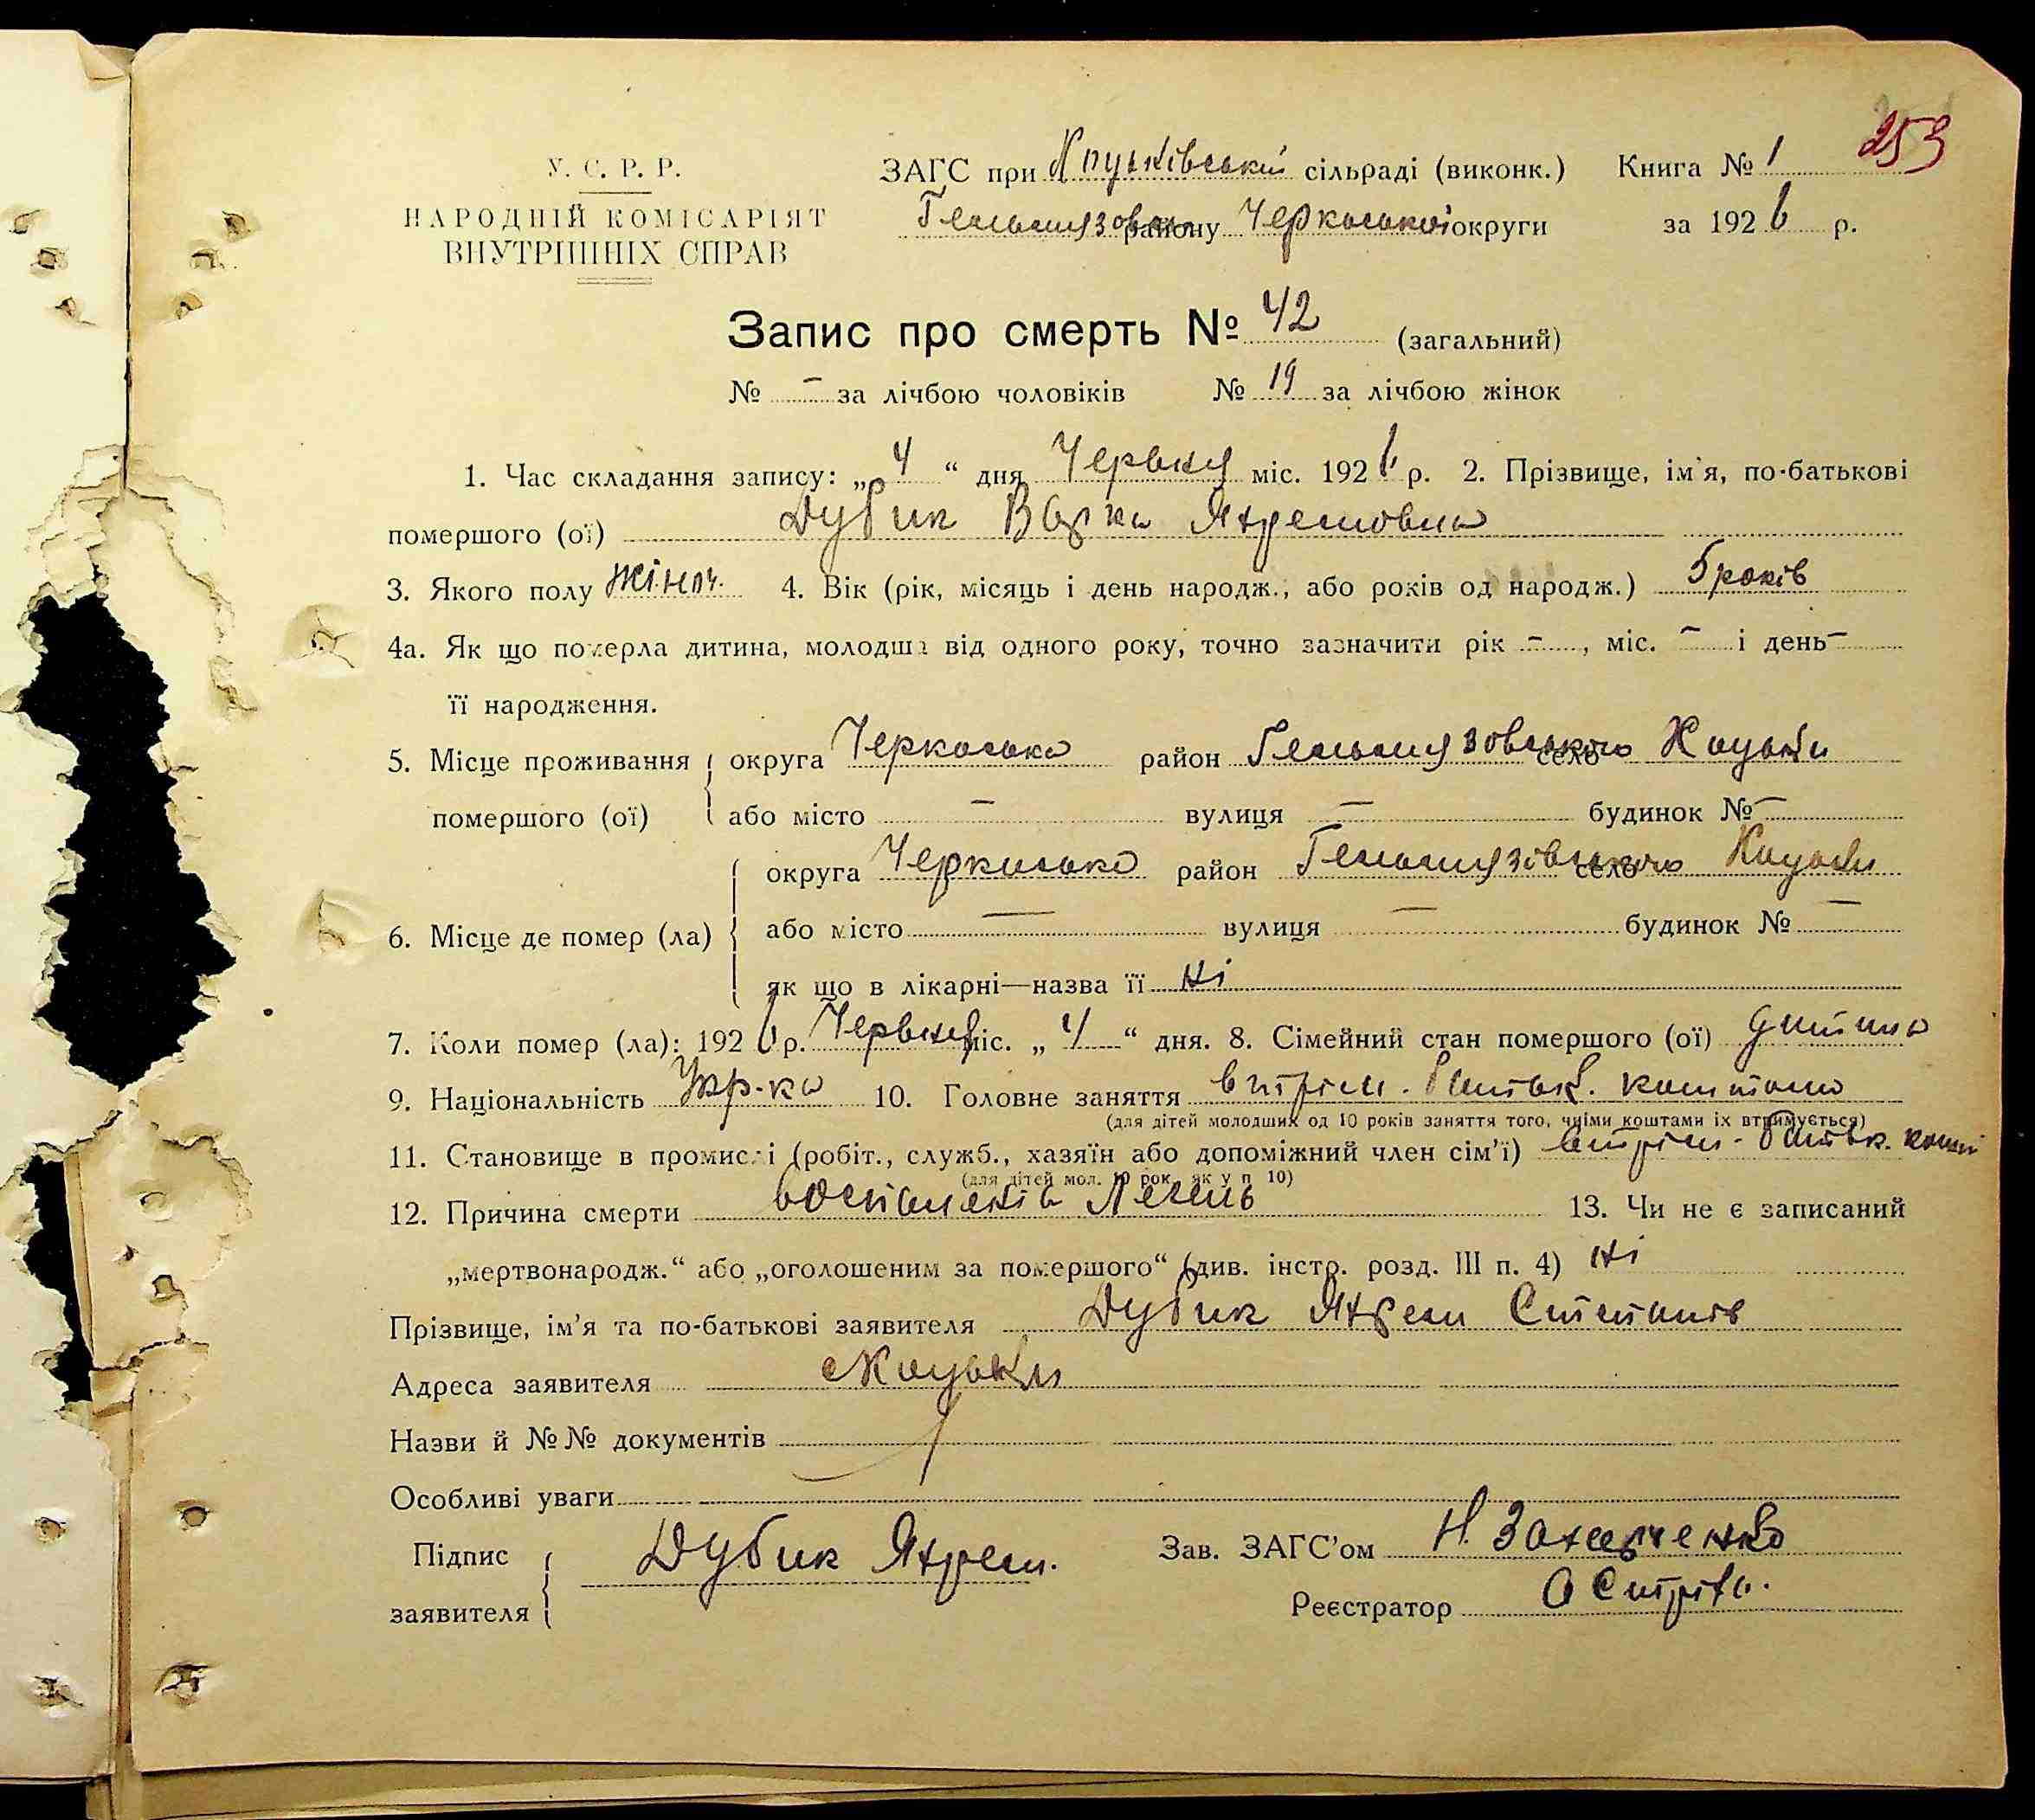 253
У. С. Р. Р.
НАРОДНІЙ КОМІСАРІЯТ
ВНУТРІШНІХ СПРАВ
ЗАГС при сільраді (виконк.) Книга № 1
району Черкаської округи за 1926 р.
Запис про смерть № 42 (загальний)
№ — за лічбою чоловіків № 19 за лічбою жінок
1. Час складання запису: „4“ дня Червня міс. 1926 р. 2. Прізвище, ім'я, по-батькові
помершого (ої) Дубик Варка
3. Якого полу жіноч. 4. Вік (рік, місяць і день народж., або років од народж.) 5 років
4а. Як що померла дитина, молодша від одного року, точно зазначити рік —, міс. — і день —
її народження.
5. Місце проживання округа Черкаська район Гельмязовського село
помершого (ої) або місто — вулиця — будинок № —
округа Черкаська район Гельмязовського село
6. Місце де помер (ла) або місто — вулиця — будинок № —
як що в лікарні—назва її ні
7. Коли помер (ла): 1926 р. Червня міс. „4“ дня. 8. Сімейний стан помершого (ої) дитина
9. Національність Укр-ка 10. Головне заняття втрим. батьк. коштами
(для дітей молодших од 10 років заняття того, чиїми коштами їх втримується)
11. Становище в промислі (робіт., служб., хазяїн або допоміжний член сім'ї) втрим. батьк. кошт
(для дітей мол. 10 рок. як у п 10)
12. Причина смерти Легень 13. Чи не є записаний
„мертвонародж.“ або „оголошеним за помершого“ (див. інстр. розд. III п. 4) ні
Прізвище, ім'я та по-батькові заявителя Дубик
Адреса заявителя
Назви й №№ документів
Особливі уваги
Підпис Дубик Зав. ЗАГС'ом
заявителя Реєстратор